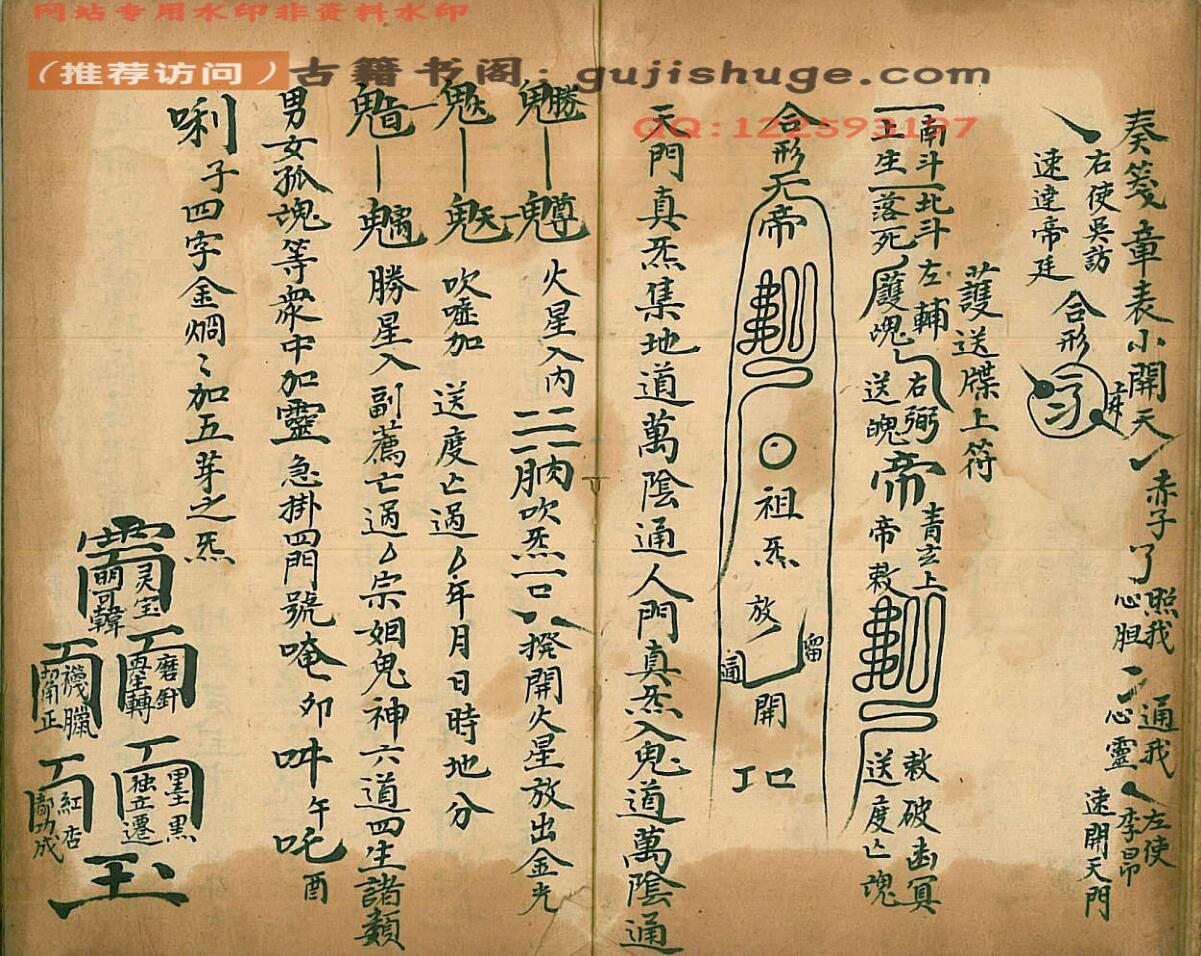 网站专用水印非资料水印
（推荐访问）古籍书阁：gujishuge.com
QQ:122593197
奏箋章表小開天 赤子了 照我心胆 通我心靈 左使李昂 速開天門
右使吳訪 速達帝廷 合形
護送牒上符
南斗上生 北斗落死 左輔 右弼 護魂 送魂 帝 青玄上帝敕 敕破幽冥 送度亡魂
合形 帝 祖炁 放 開 留
天門真炁集地道萬陰通人門真炁入鬼道萬陰通
火星入內 吹炁一口 撥開火星放出金光
吹噓加 送度亡過 年月日時地分
勝星入副薦亡過 宗姻鬼神六道四生諸類
男女孤魂等衆中加靈急掛四門號唵 卯 吽 午 吒 酉
唎 子四字金焵 加五芽之炁
灵宝
磨針
墨黑 独立遷
紅杏 都功成